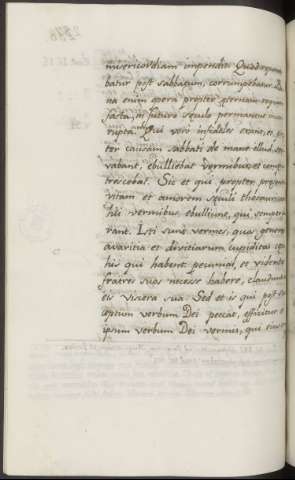 misericordiam impendit. Quod reserva
batur post sabbatum, corrumpebatur. Bo
na enim opera propter æternam requiem
facta, in futuro seculo permanent incor
rupta. Qui vero infideles erant, et pr
ter causam sabbati de manè illud ser
vabant, ebulliebat vermibus, et compu
trescebat. Sic et qui propter præsentem
vitam et amorem seculi thesaurizant
his vermibus ebulliunt, qui semper
rant. Isti sunt vermes, quos generat
avaritia et divitiarum cupiditas ex
his qui habent pecunias, et videntes
fratres suos necesse habere, claudunt
eis viscera sua. Sed et is qui post sus
ceptum verbum Dei peccat, efficitur ei
ipsum verbum Dei vermis, qui ejus